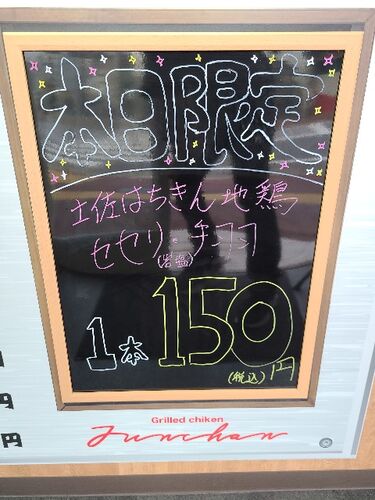 本日限定
土佐はちきん地鶏
セセリ・チコフ
(岩塩)
1本150
(税込)円
円
円
Grilled chiken
Junchan